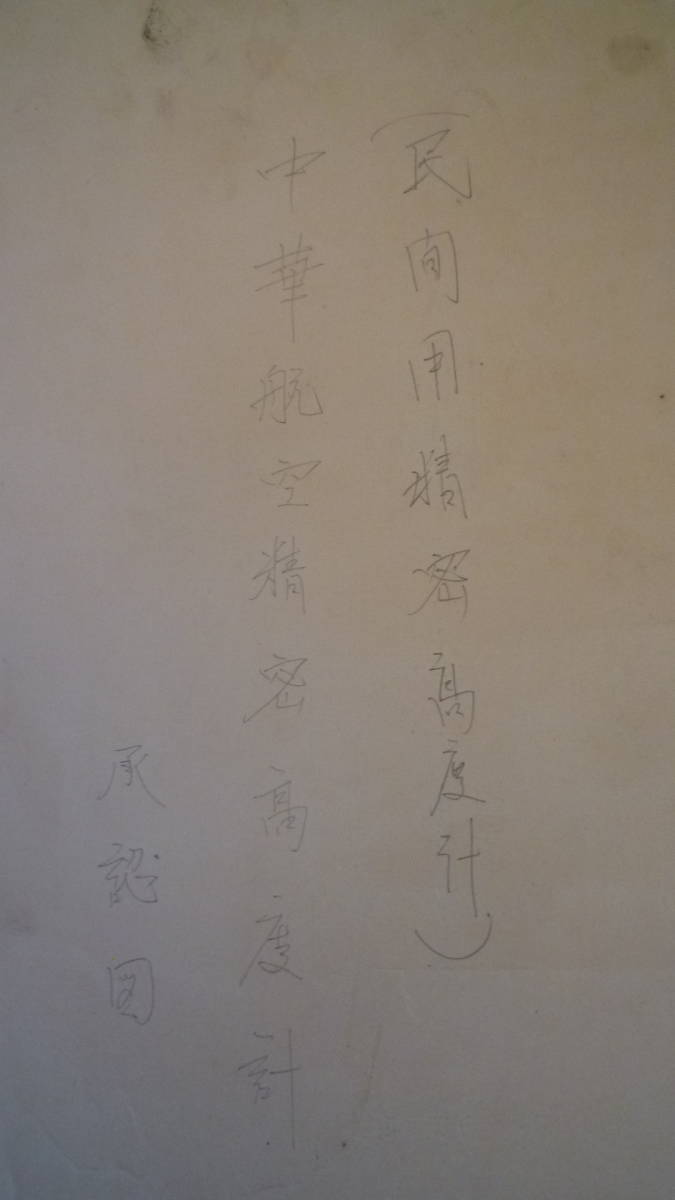 (民間用精密高度計)
中華航空精密高度計
承認図